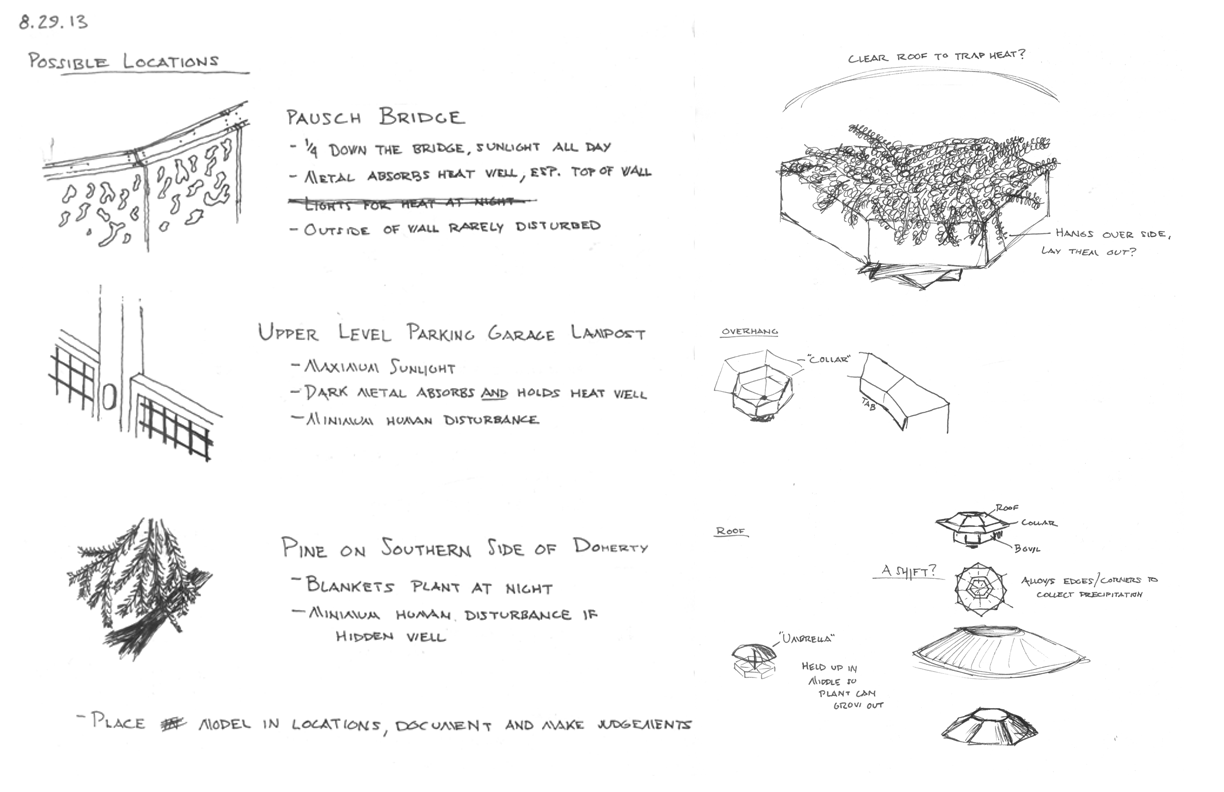 8.29.13
POSSIBLE LOCATIONS
PAUSCH BRIDGE
- 1/4 DOWN THE BRIDGE, SUNLIGHT ALL DAY
- METAL ABSORBS HEAT WELL, ESP. TOP OF WALL
- LIGHTS FOR HEAT AT NIGHT
- OUTSIDE OF WALL RARELY DISTURBED
UPPER LEVEL PARKING GARAGE LAMPOST
- MAXIMUM SUNLIGHT
- DARK METAL ABSORBS AND HOLDS HEAT WELL
- MINIMUM HUMAN DISTURBANCE
PINE ON SOUTHERN SIDE OF DOHERTY
- BLANKETS PLANT AT NIGHT
- MINIMUM HUMAN DISTURBANCE IF
HIDDEN WELL
- PLACE MODEL IN LOCATIONS, DOCUMENT AND MAKE JUDGEMENTS
CLEAR ROOF TO TRAP HEAT?
HANGS OVER SIDE,
LAY THEM OUT?
OVERHANG
"COLLAR"
TAB
ROOF
ROOF
COLLAR
BOWL
A SHIFT?
ALLOWS EDGES/CORNERS TO
COLLECT PRECIPITATION
"UMBRELLA"
HELD UP IN
MIDDLE SO
PLANT CAN
GROW OUT